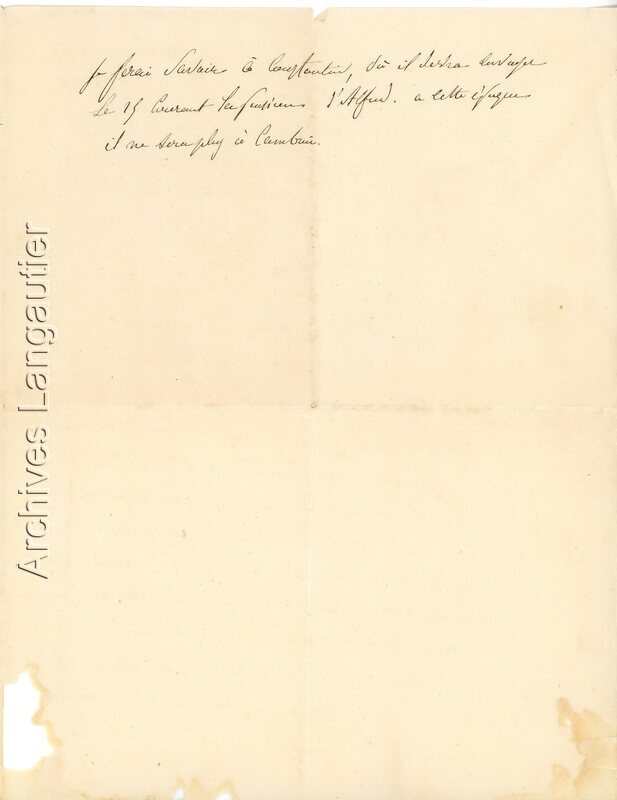 je ferai savoir à Constantin, où il devra envoyer
le 15 courant la pension d'Alfred. a cette époque
il ne sera plus à Cambrai.
Archives Langautier